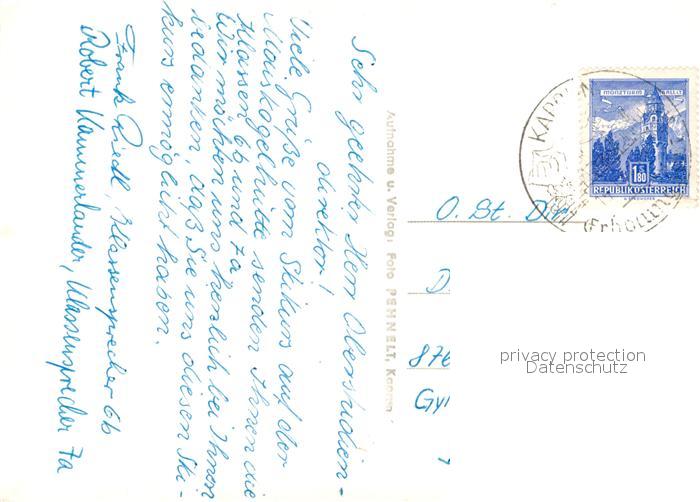 Sehr geehrter Herr Oberstudien-
direktor!
Viele Grüße vom Skikurs auf der
Mauskogelhütte senden Ihnen die
Klassen 6b und 7a
Wir möchten uns herzlich bei Ihnen
bedanken, daß Sie uns diesen Ski-
kurs ermöglicht haben.
Frank Riedl, Klassensprecher 6b
Robert Kammerlander, Klassensprecher 7a
Aufnahme u. Verlag: Foto PEHNELT, Kaprun
MÜNZTURM HALL I.T.
1.80
REPUBLIK ÖSTERREICH
KAPR
Erholung
O. St. Dir
D
876
Gy
privacy protection
Datenschutz